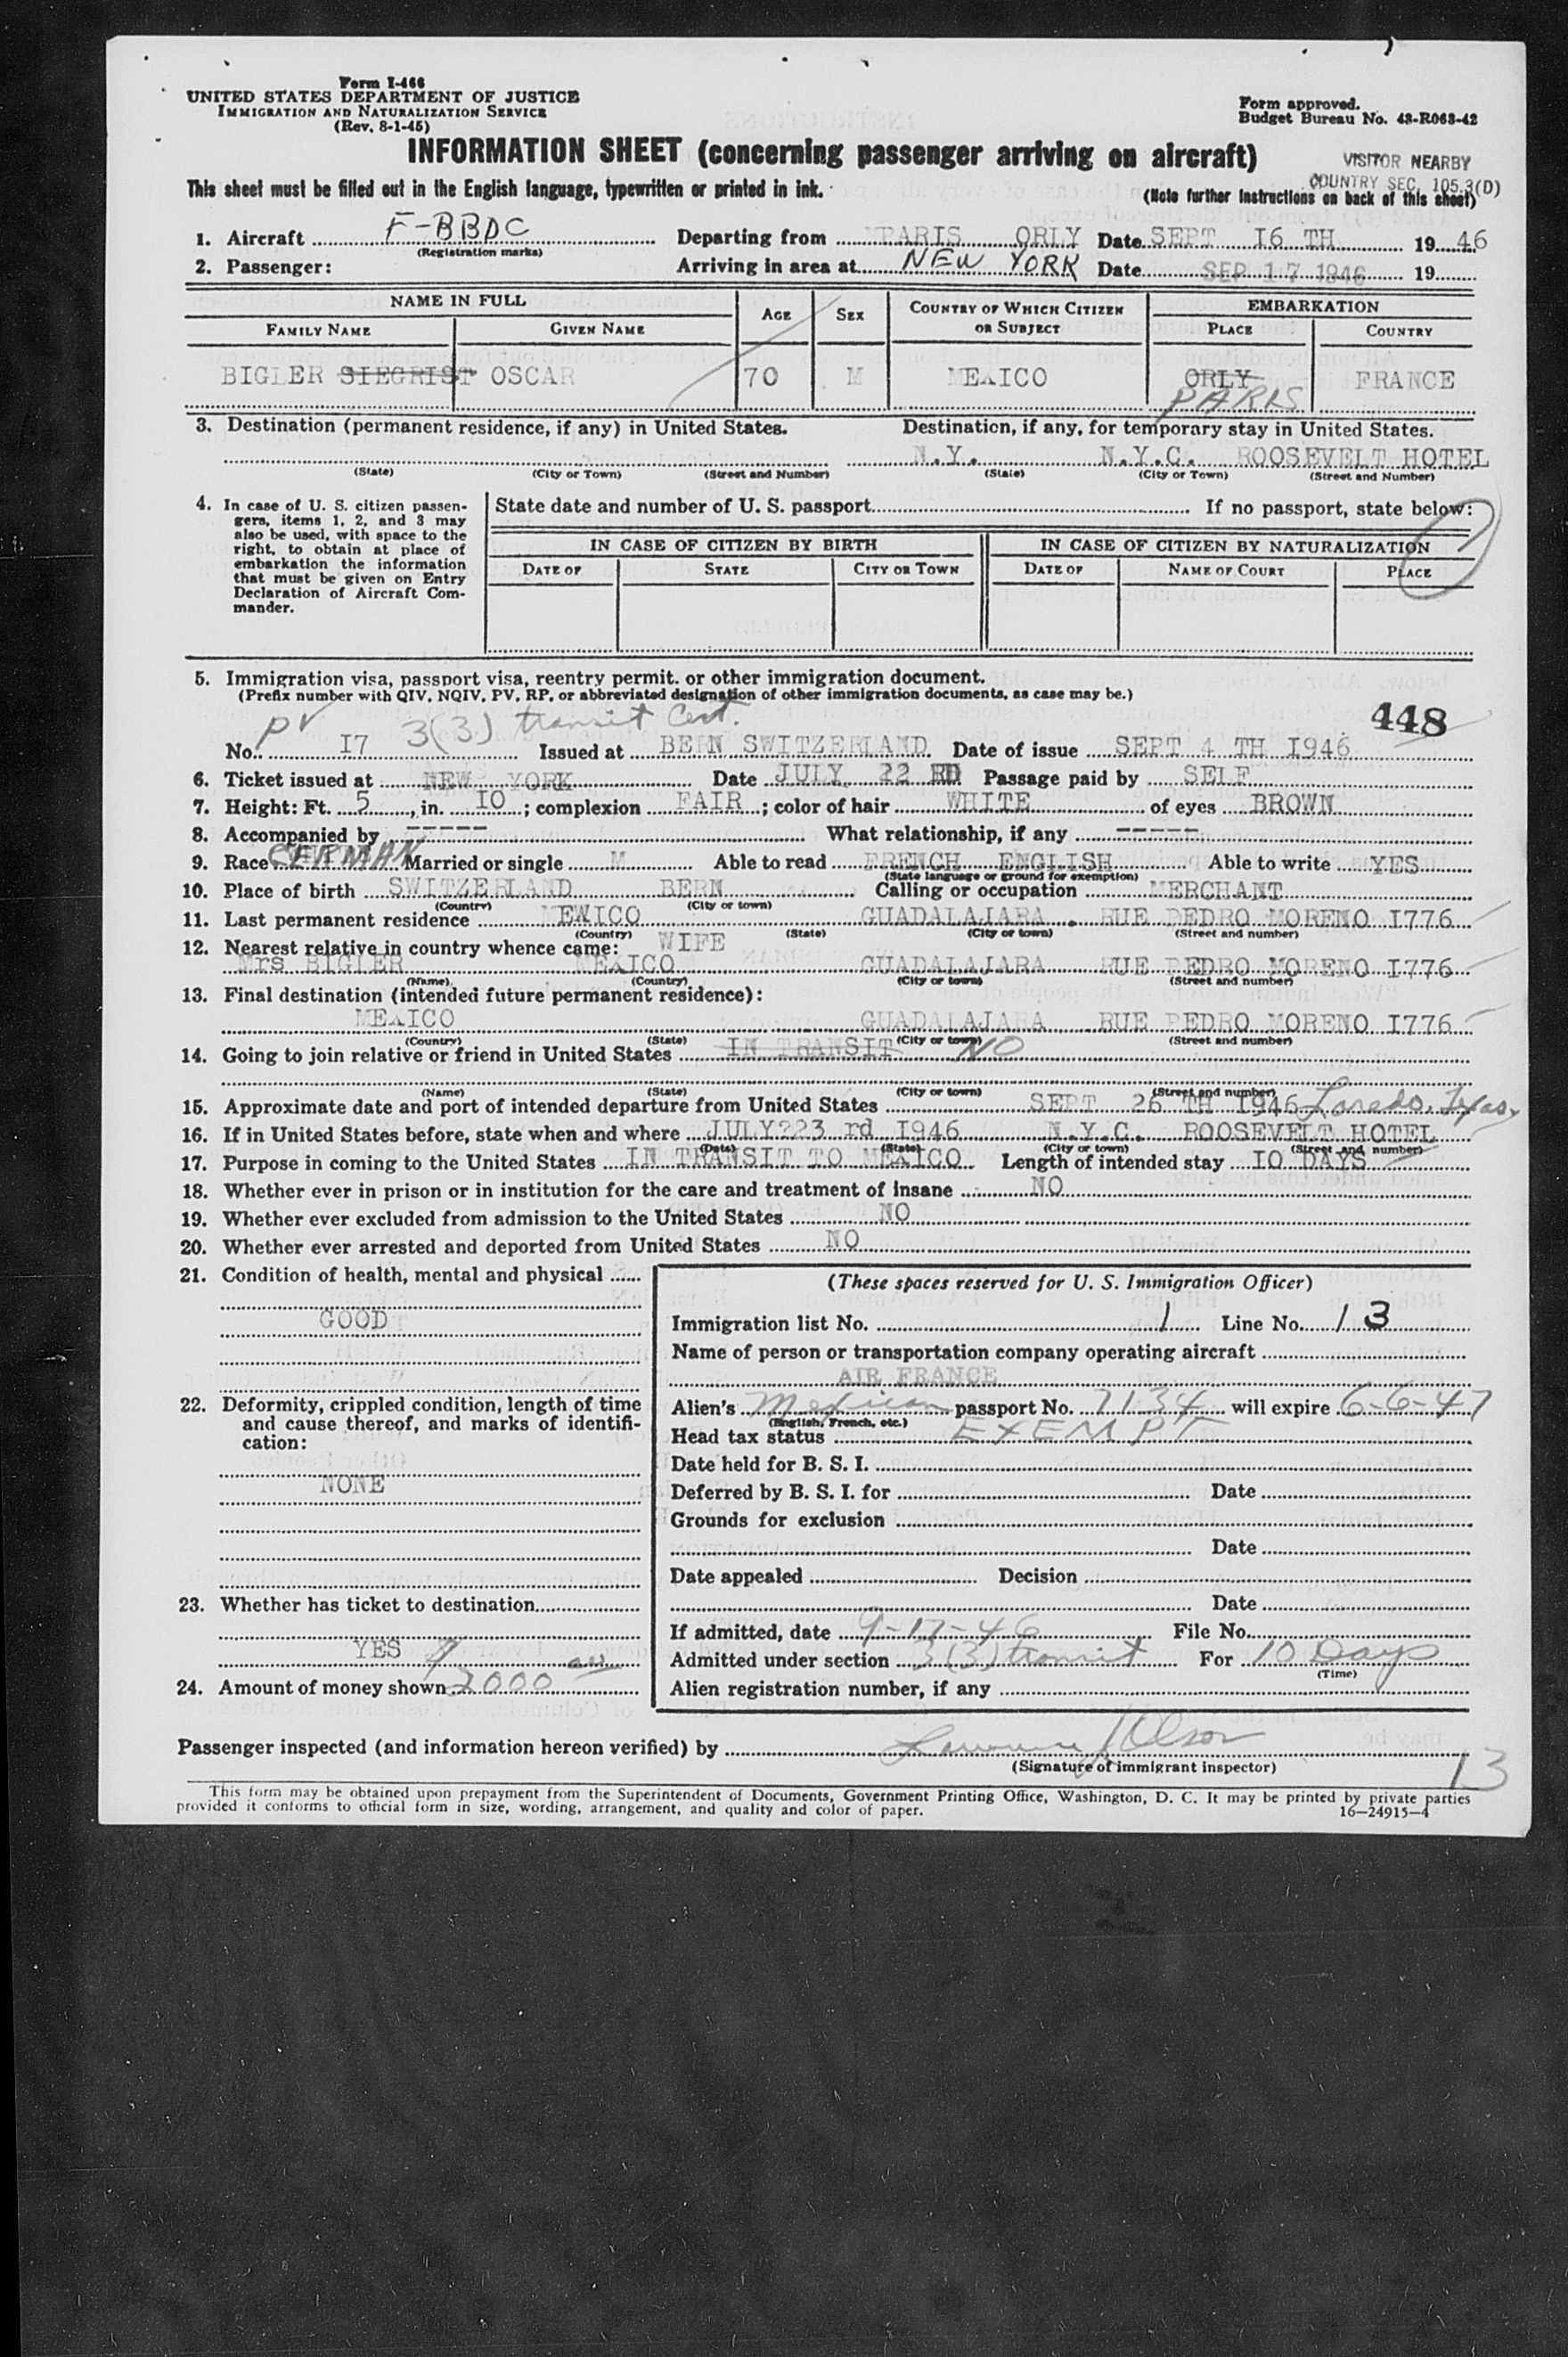 Form I-466
UNITED STATES DEPARTMENT OF JUSTICE
IMMIGRATION AND NATURALIZATION SERVICE
(Rev. 8-1-45)
Form approved.
Budget Bureau No. 43-R063-42
INFORMATION SHEET (concerning passenger arriving on aircraft)
VISITOR NEARBY
COUNTRY SEC. 105.3(D)
This sheet must be filled out in the English language, typewritten or printed in ink.
(Note further instructions on back of this sheet)
1. Aircraft F-BBDC Departing from PARIS ORLY Date SEPT 16 TH 1946
(Registration marks)
2. Passenger: Arriving in area at NEW YORK Date SEP 17 1946 19
NAME IN FULL AGE SEX COUNTRY OF WHICH CITIZEN OR SUBJECT EMBARKATION
FAMILY NAME GIVEN NAME PLACE COUNTRY
BIGLER SIEGRIST OSCAR 70 M MEXICO ORLY FRANCE
PARIS
3. Destination (permanent residence, if any) in United States. Destination, if any, for temporary stay in United States.
N.Y. N.Y.C. ROOSEVELT HOTEL
(State) (City or Town) (Street and Number) (State) (City or Town) (Street and Number)
4. In case of U. S. citizen passengers, items 1, 2, and 3 may also be used, with space to the right, to obtain at place of embarkation the information that must be given on Entry Declaration of Aircraft Commander.
State date and number of U. S. passport If no passport, state below:
IN CASE OF CITIZEN BY BIRTH IN CASE OF CITIZEN BY NATURALIZATION
DATE OF STATE CITY OR TOWN DATE OF NAME OF COURT PLACE
5. Immigration visa, passport visa, reentry permit. or other immigration document.
(Prefix number with QIV, NQIV, PV, RP, or abbreviated designation of other immigration documents, as case may be.)
448
PV 3(3) transit Cert.
No. I7 Issued at BERN SWITZERLAND Date of issue SEPT 4 TH I946
6. Ticket issued at NEW YORK Date JULY 22 RD Passage paid by SELF
7. Height: Ft. 5, in. IO; complexion FAIR; color of hair WHITE of eyes BROWN
8. Accompanied by ----- What relationship, if any -----
9. Race GERMAN Married or single M Able to read FRENCH ENGLISH Able to write YES
(State language or ground for exemption)
10. Place of birth SWITZERLAND BERN Calling or occupation MERCHANT
(Country) (City or town)
11. Last permanent residence MEWICO GUADALAJARA. RUE PEDRO MORENO I776
(Country) (State) (City or town) (Street and number)
12. Nearest relative in country whence came: WIFE
Mrs BIGLER MEXICO GUADALAJARA RUE PEDRO MORENO I776
(Name) (Country) (City or town) (Street and number)
13. Final destination (intended future permanent residence):
MEXICO GUADALAJARA RUE PEDRO MORENO I776
(Country) (State) (City or town) (Street and number)
14. Going to join relative or friend in United States IN TRANSIT NO
(Name) (State) (City or town) (Street and number)
15. Approximate date and port of intended departure from United States SEPT 26 TH I946 Laredo, Texas
16. If in United States before, state when and where JULY?23 rd I946 N.Y.C. ROOSEVELT HOTEL
(Date) (State) (City or town) (Street and number)
17. Purpose in coming to the United States IN TRANSIT TO MEXICO Length of intended stay IO DAYS
18. Whether ever in prison or in institution for the care and treatment of insane NO
19. Whether ever excluded from admission to the United States NO
20. Whether ever arrested and deported from United States NO
21. Condition of health, mental and physical
GOOD
22. Deformity, crippled condition, length of time and cause thereof, and marks of identification:
NONE
23. Whether has ticket to destination
YES
24. Amount of money shown $2000
(These spaces reserved for U. S. Immigration Officer)
Immigration list No. 1 Line No. 13
Name of person or transportation company operating aircraft
AIR FRANCE
Alien's Mexican passport No. 7134 will expire 6-6-47
(English, French, etc.)
Head tax status EXEMPT
Date held for B. S. I.
Deferred by B. S. I. for Date
Grounds for exclusion
Date
Date appealed Decision
Date
If admitted, date 9-17-46 File No.
Admitted under section 3(3) transit For 10 Days
(Time)
Alien registration number, if any
Passenger inspected (and information hereon verified) by
(Signature of immigrant inspector)
13
This form may be obtained upon prepayment from the Superintendent of Documents, Government Printing Office, Washington, D. C. It may be printed by private parties
provided it conforms to official form in size, wording, arrangement, and quality and color of paper.
16—24915-4